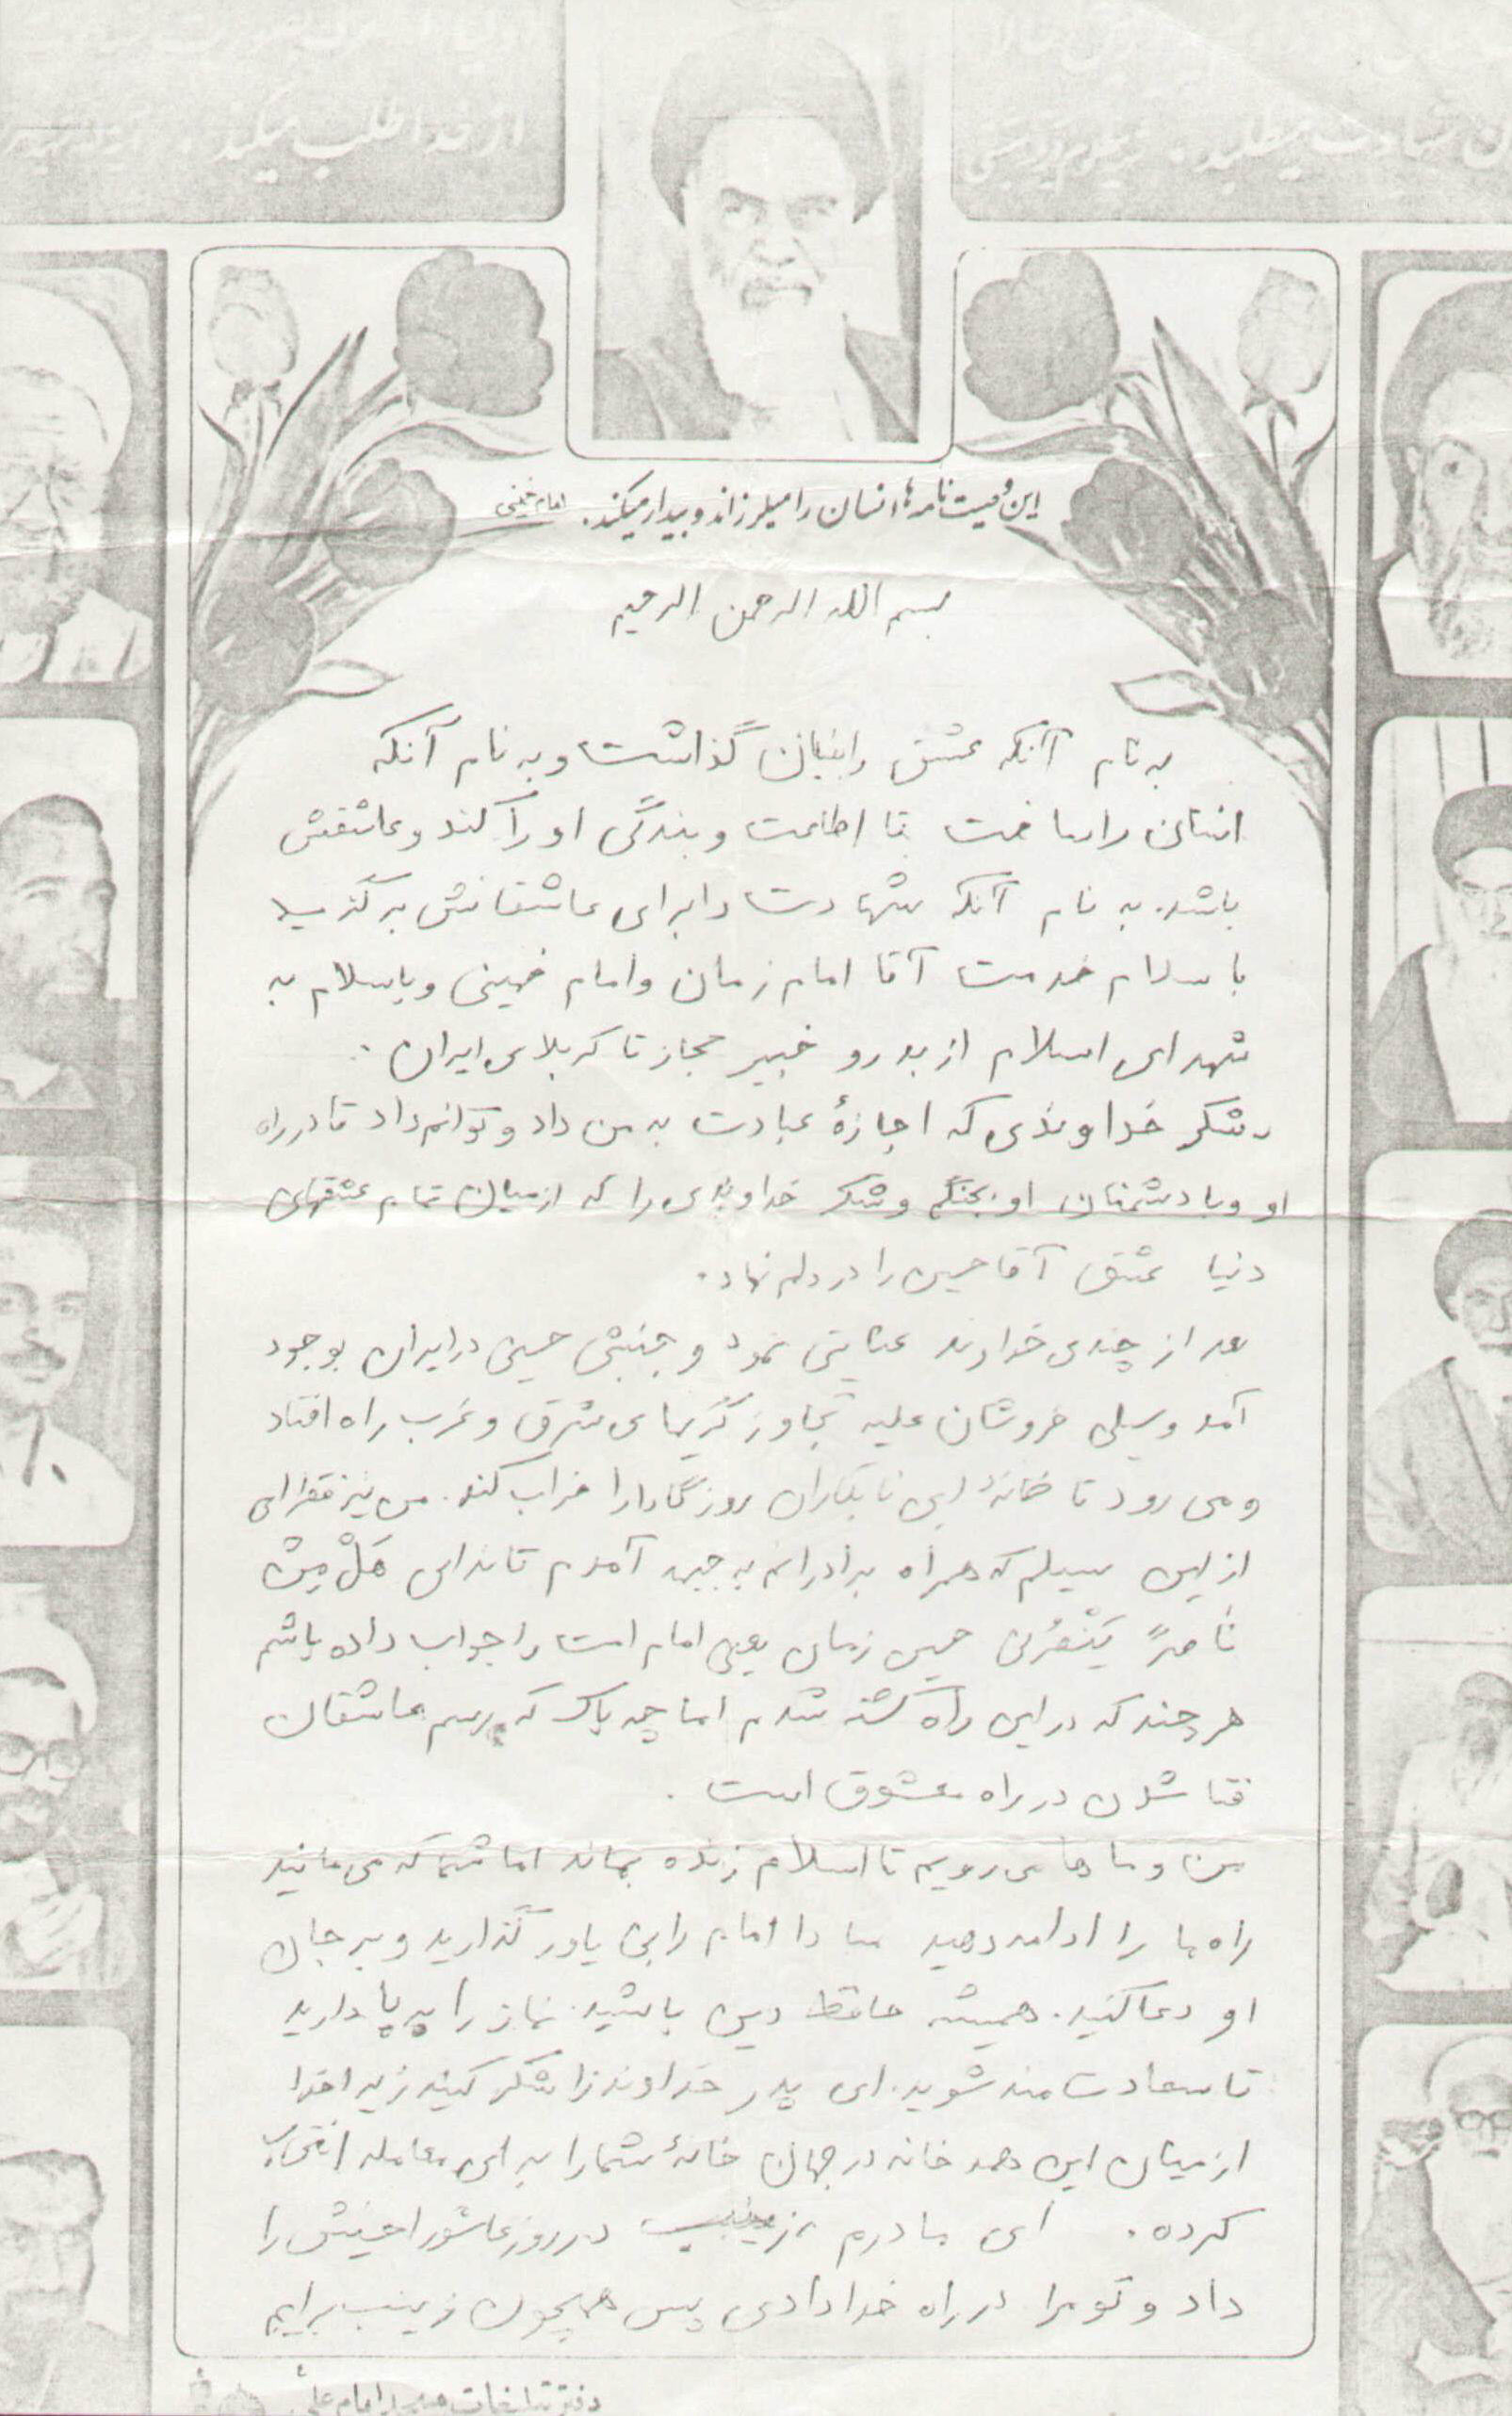 از خدا طلب میکند.
این وصیت نامه ها انسان را میلرزاند و بیدار میکند. امام خمینی
بسم الله الرحمن الرحیم
به نام آنکه عشق را بنیان گذاشت و به نام آنکه
انسان را ساخت تا اطاعت و بندگی او را کند و عاشقش
باشد. به نام آنکه شهادت را برای عاشقانش برگزید
با سلام خدمت آقا امام زمان و امام خمینی و با سلام به
شهدای اسلام از بدر و خیبر حجاز تا کربلای ایران.
شکر خداوندی که اجازهٔ عبادت به من داد و توانم داد تا در راه
او و با دشمنان او بجنگم و شکر خداوندی را که از میان تمام عشقهای
دنیا عشق آقا حسین را در دلم نهاد.
بعد از چندی خداوند عنایتی نمود و جنبش حسینی در ایران بوجود
آمد و سیلی خروشان علیه تجاوزگریهای شرق و غرب راه افتاد
و می رود تا خانهٔ این نابکاران روزگار را خراب کند. من نیز قطرهای
از این سیلم که همراه برادرانم به جبهه آمدم تا ندای هَلْ مِنْ
ناصرً یَنْصُرنی حسین زمان یعنی امام امت را جواب داده باشم
هر چند که در این راه کشته شدم اما چه باک که رسم عاشقان
فنا شدن در راه معشوق است.
من و ماها می رویم تا اسلام زنده بماند اما شما که می مانید
راه ما را ادامه دهید مبادا امام را بی یاور گذارید و به جان
او دعا کنید. همیشه حافظ دین باشید. نماز را به پا دارید
تا سعادت مند شوید. ای پدر خداوند را شکر کنید زیرا خدا
از میان این همه خانه در جهان خانهٔ شما را برای معامله انتخاب
کرده. ای مادرم زینب در روز عاشورا حسینش را
داد و تو مرا در راه خدا دادی پس همچون زینب برایم
دفتر تبلیغات مسجد امام علی